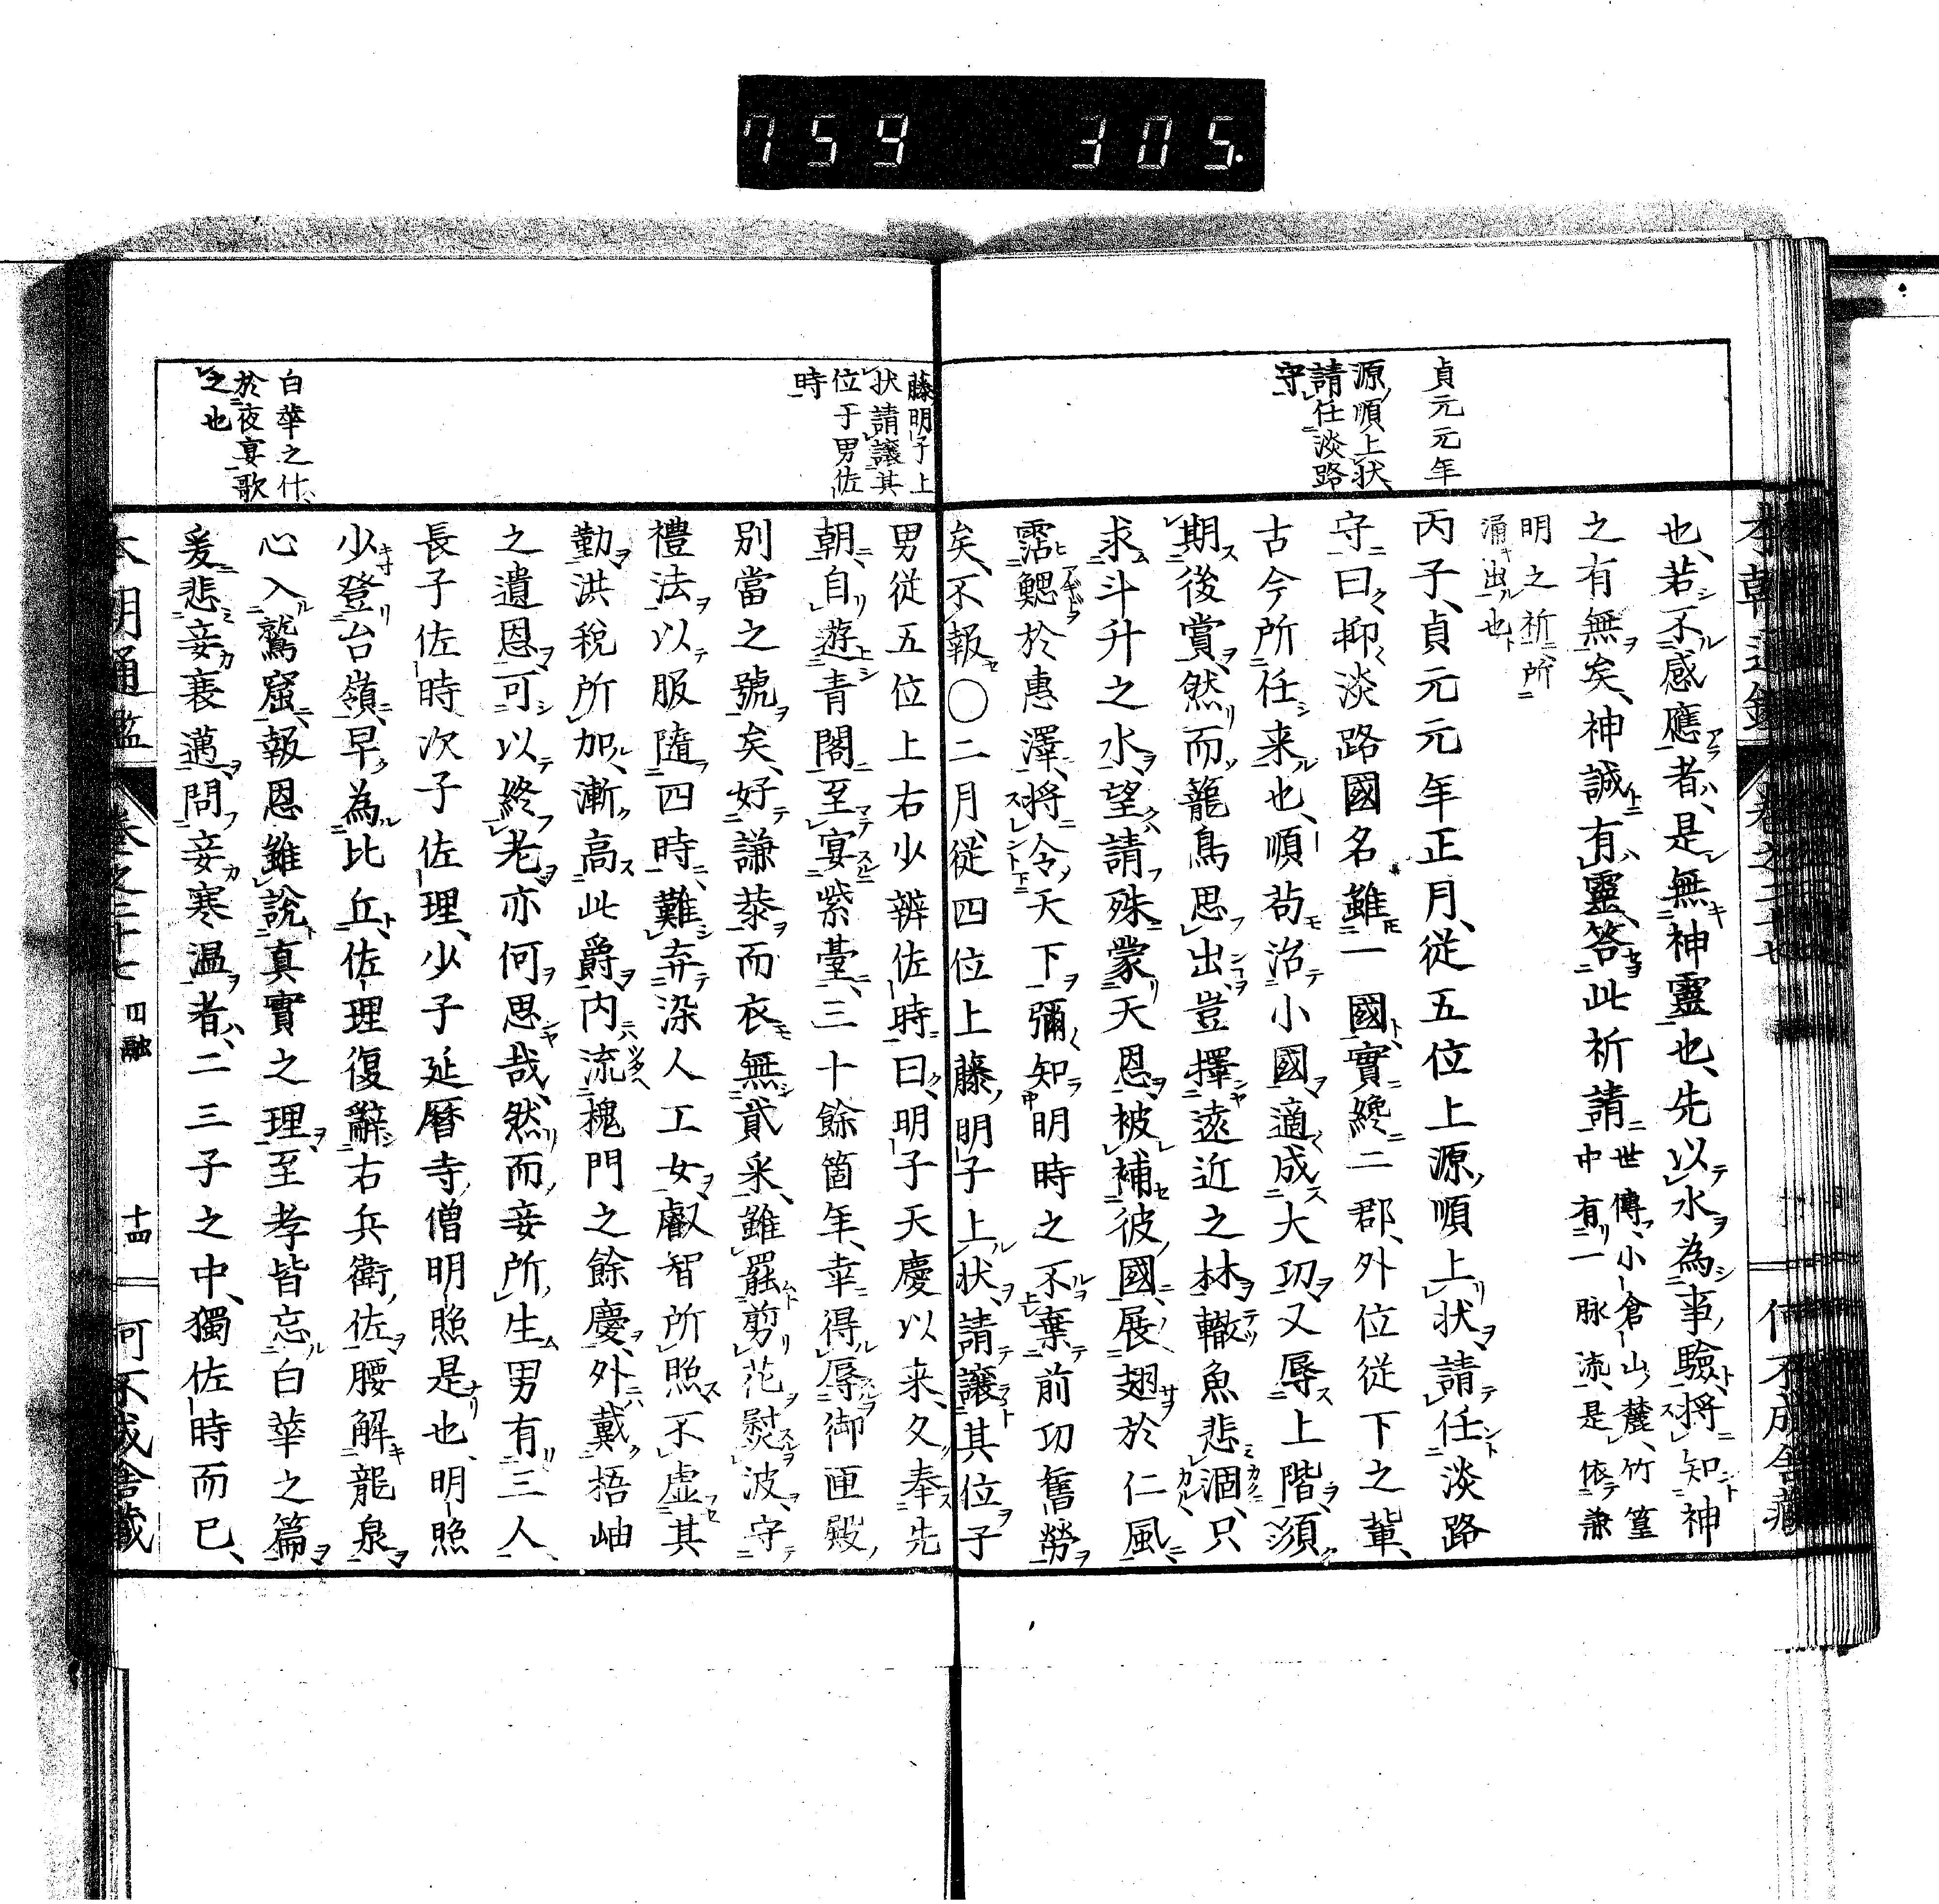 759 305.
貞元元年
源順上状
請任淡路
守
也、若不感應者、是無神靈也、先以水為事驗、将知神
之有無矣、神誠有靈、答此祈請世傳、小倉山麓、竹篁
中有一脉流、是依兼
明之祈、所
涌出也
丙子、貞元元年正月、従五位上源順上状、請任淡路
守曰、抑淡路國名雖一國、實纔二郡、外位従下之輩、
古今所任来也、順苟治小國、適成大功、又辱上階、須
期後賞、然而籠鳥思出、豈擇遠近之林、轍魚悲涸、只
求斗升之水、望請殊蒙天恩、被補彼國、展翅於仁風
霑鰓於惠澤、将令天下彌知明時之不棄前功舊勞
矣、不報○二月、従四位上藤明子上状、請讓其位子
藤明子上
状請讓其
位于男佐
時
白華之什、
於夜宴歌
之也
男従五位上右少辨佐時曰、明子天慶以来、久奉先
朝、自遊青閣至宴紫臺、三十餘箇年、幸得辱御匣殿
別當之號矣、好謙恭而衣無貳采、雖罷剪花熨波、守
禮法以服隨四時、難弃染人工女、叡智所照不虚其
勤、洪税所加、漸高此爵、内流槐門之餘慶、外戴梧岫
之遺恩、可以終老、亦何思哉、然而妾所生男有三人、
長子佐時次子佐理、少子延暦寺僧明照是也、明照
少登台嶺、早為比丘、佐理復辭右兵衛佐、腰解龍泉
心入鷲窟、報恩雖説真實之理、至孝皆忘白華之篇
爰悲妾衰邁、問妾寒温者、二三子之中、獨佐時而已、
本朝通鑑 卷之二十七 四融 十四 何不成舎藏